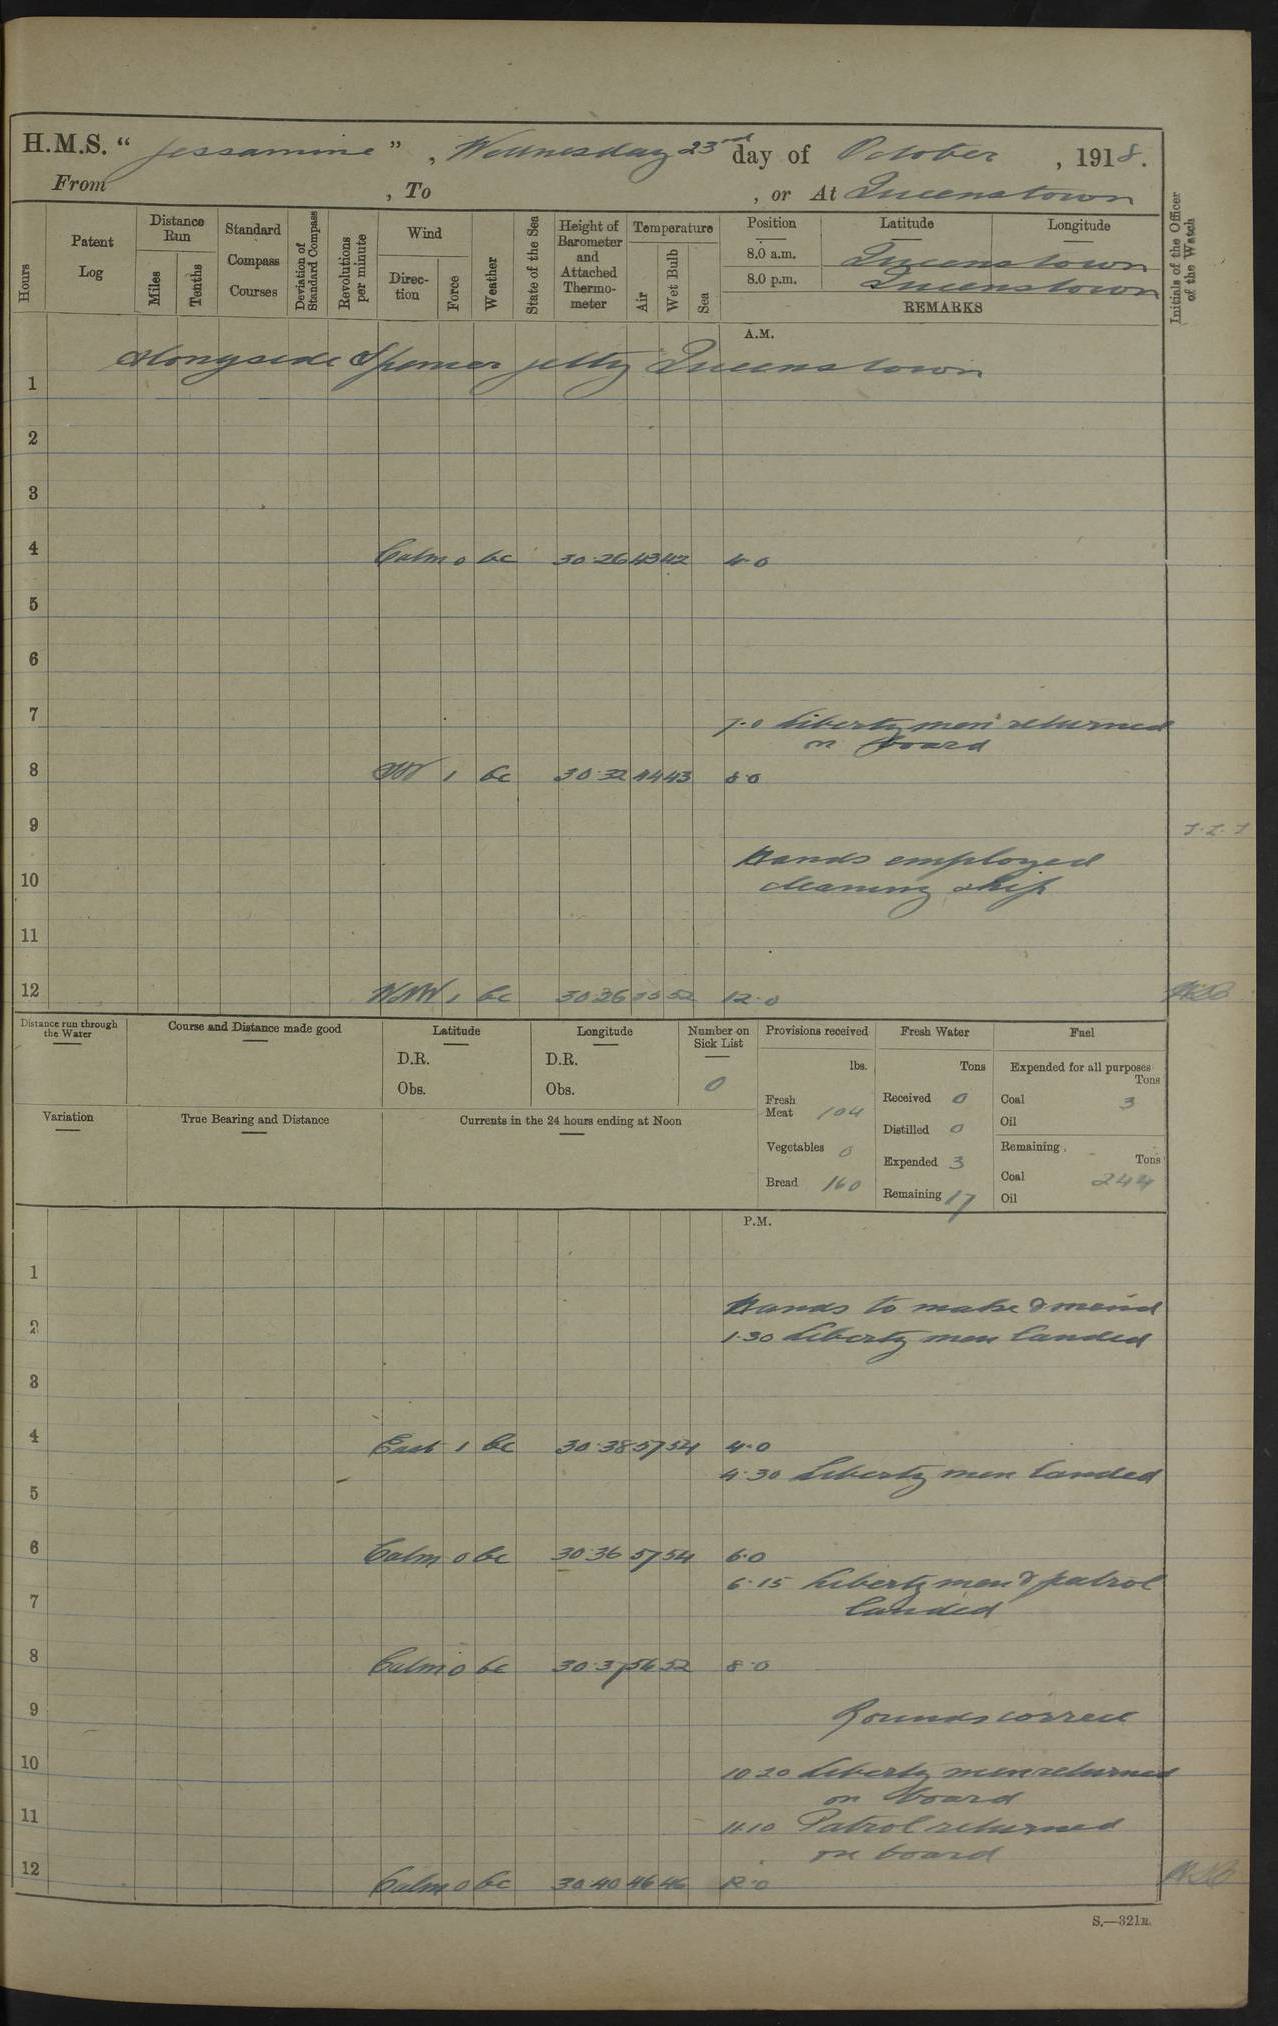 H.M.S. “Jessamine”, Wednesday 23rd day of October, 1918.
From , To , or At Queenstown
Hours
Patent Log
Distance Run
Miles
Tenths
Standard Compass Courses
Deviation of Standard Compass
Revolutions per minute
Wind
Direction
Force
Weather
State of the Sea
Height of Barometer and Attached Thermometer
Temperature
Air
Wet Bulb
Sea
Position Latitude Longitude
8.0 a.m. Queenstown
8.0 p.m. Queenstown
REMARKS
Initials of the Officer of the Watch
A.M.
Alongside Spencer jetty Queenstown
1
2
3
4 Calm 0 bc 30.26 43 42 4.0
5
6
7 7.0 Liberty men returned
on board
8 1 bc 30.32 44 43 8.0
9
Hands employed
10 cleaning ship
11
12 WNW 1 bc 30.36 55 52 12.0
Distance run through the Water
Course and Distance made good
Latitude
D.R.
Obs.
Longitude
D.R.
Obs.
Number on Sick List
0
Provisions received
lbs.
Fresh Meat 104
Vegetables 0
Bread 160
Fresh Water
Tons
Received 0
Distilled 0
Expended 3
Remaining 17
Fuel
Expended for all purposes
Tons
Coal 3
Oil
Remaining
Tons
Coal 244
Oil
Variation
True Bearing and Distance
Currents in the 24 hours ending at Noon
P.M.
1
Hands to make & mend
2 1.30 Liberty men landed
3
4 East 1 bc 30.38 57 54 4.0
4.30 Liberty men landed
5
6 Calm 0 bc 30.36 57 54 6.0
6.15 Liberty men & patrol
7 landed
8 Calm 0 bc 30.37 54 52 8.0
9 Rounds correct
10 10.20 Liberty men returned
on board
11 11.10 Patrol returned
on board
12 Calm 0 bc 30.40 46 46 12.0
S.—321B.